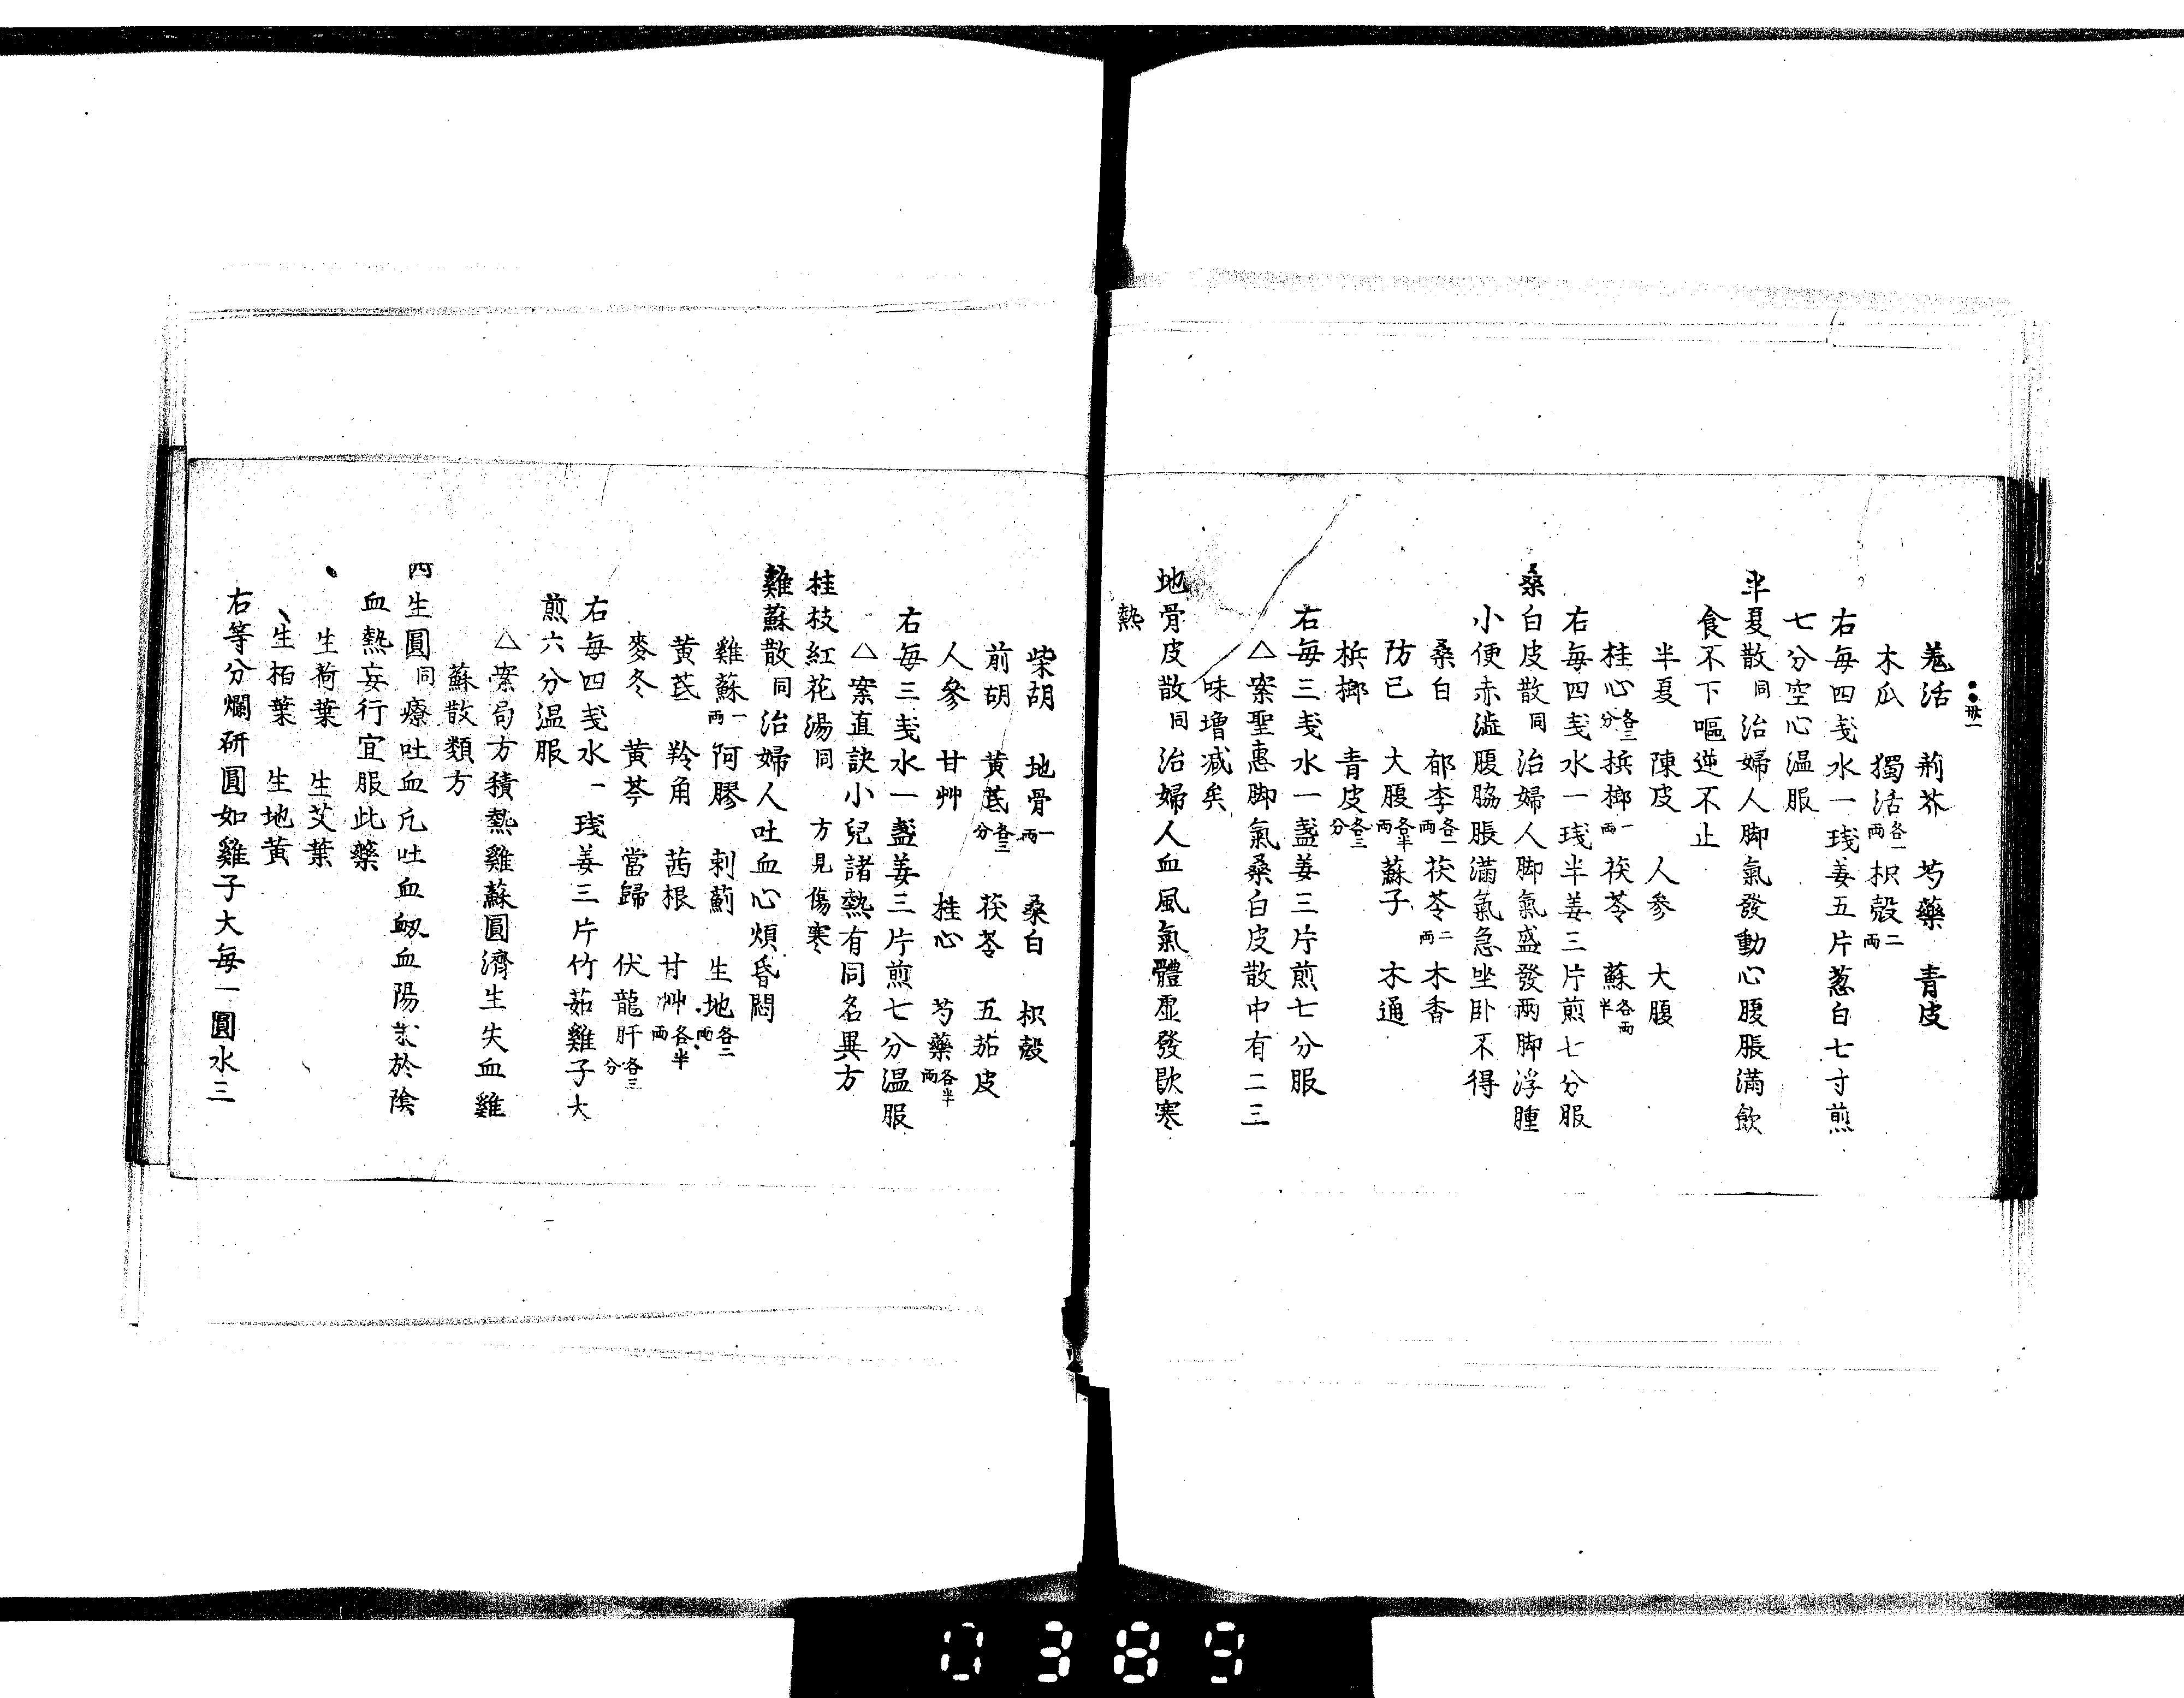 卅一
羗活　荊芥　芍藥　青皮
木瓜　獨活各一兩　枳殻二兩
右每四戔水一琖姜五片葱白七寸煎
七分空心温服
半夏散同　治婦人脚氣發動心腹脹滿飲
食不下嘔逆不止
半夏　陳皮　人參　大腹
桂心各三分　梹榔一兩　茯苓　蘇各半兩
右每四戔水一琖半姜三片煎七分服
桑白皮散同　治婦人脚氣盛發兩脚浮腫
小便赤澁腹脇脹滿氣急坐卧不得
桑白　郁李各一兩　茯苓二兩　木香
防已　大腹各半兩　蘇子　木通
梹榔　青皮各三分
右每三戔水一盞姜三片煎七分服
△案聖惠脚氣桑白皮散中有二三
味增减矣
地骨皮散同　治婦人血風氣體虛發歇寒
熱
柴胡　地骨一兩　桑白　枳殼
前胡　黄芪各三分　茯苓　五茄皮
人參　甘艸　桂心　芍藥各半兩
右每三戔水一盞姜三片煎七分温服
△案直訣小兒諸熱有同名異方
桂枝紅花湯同　方見傷寒
雞蘇散同　治婦人吐血心煩昏悶
雞蘇一兩　阿膠　刺薊　生地各二兩
黄芪　羚角　茜根　甘艸各半兩
麥冬　黄芩　當歸　伏龍肝各三分
右每四戔水一琖姜三片竹茹雞子大
煎六分温服
△案局方積熱雞蘇圓濟生失血雞
蘇散類方
四生圓同　療吐血凡吐血衂血陽盛於陰
血熱妄行宜服此藥
生荷葉　生艾葉
生柏葉　生地黄
右等分爛研圓如雞子大每一圓水三
0389